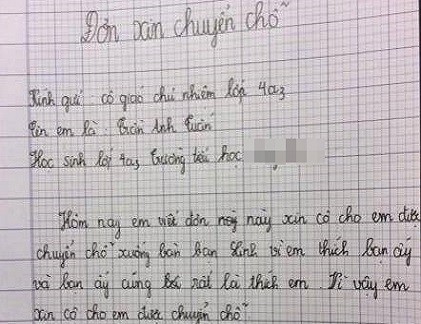 Đơn xin chuyển chỗ
Kính gửi: cô giáo chủ nhiệm lớp 4a3
Tên em là: Trần Anh Tuấn
Học sinh lớp 4a3 trường tiểu học
Hôm nay em viết đơn này xin cô cho em được
chuyển chỗ xuống bàn bạn Linh vì em thích bạn ấy
và bạn ấy cũng rất là thích em. Vì vậy em
xin cô cho em được chuyển chỗ